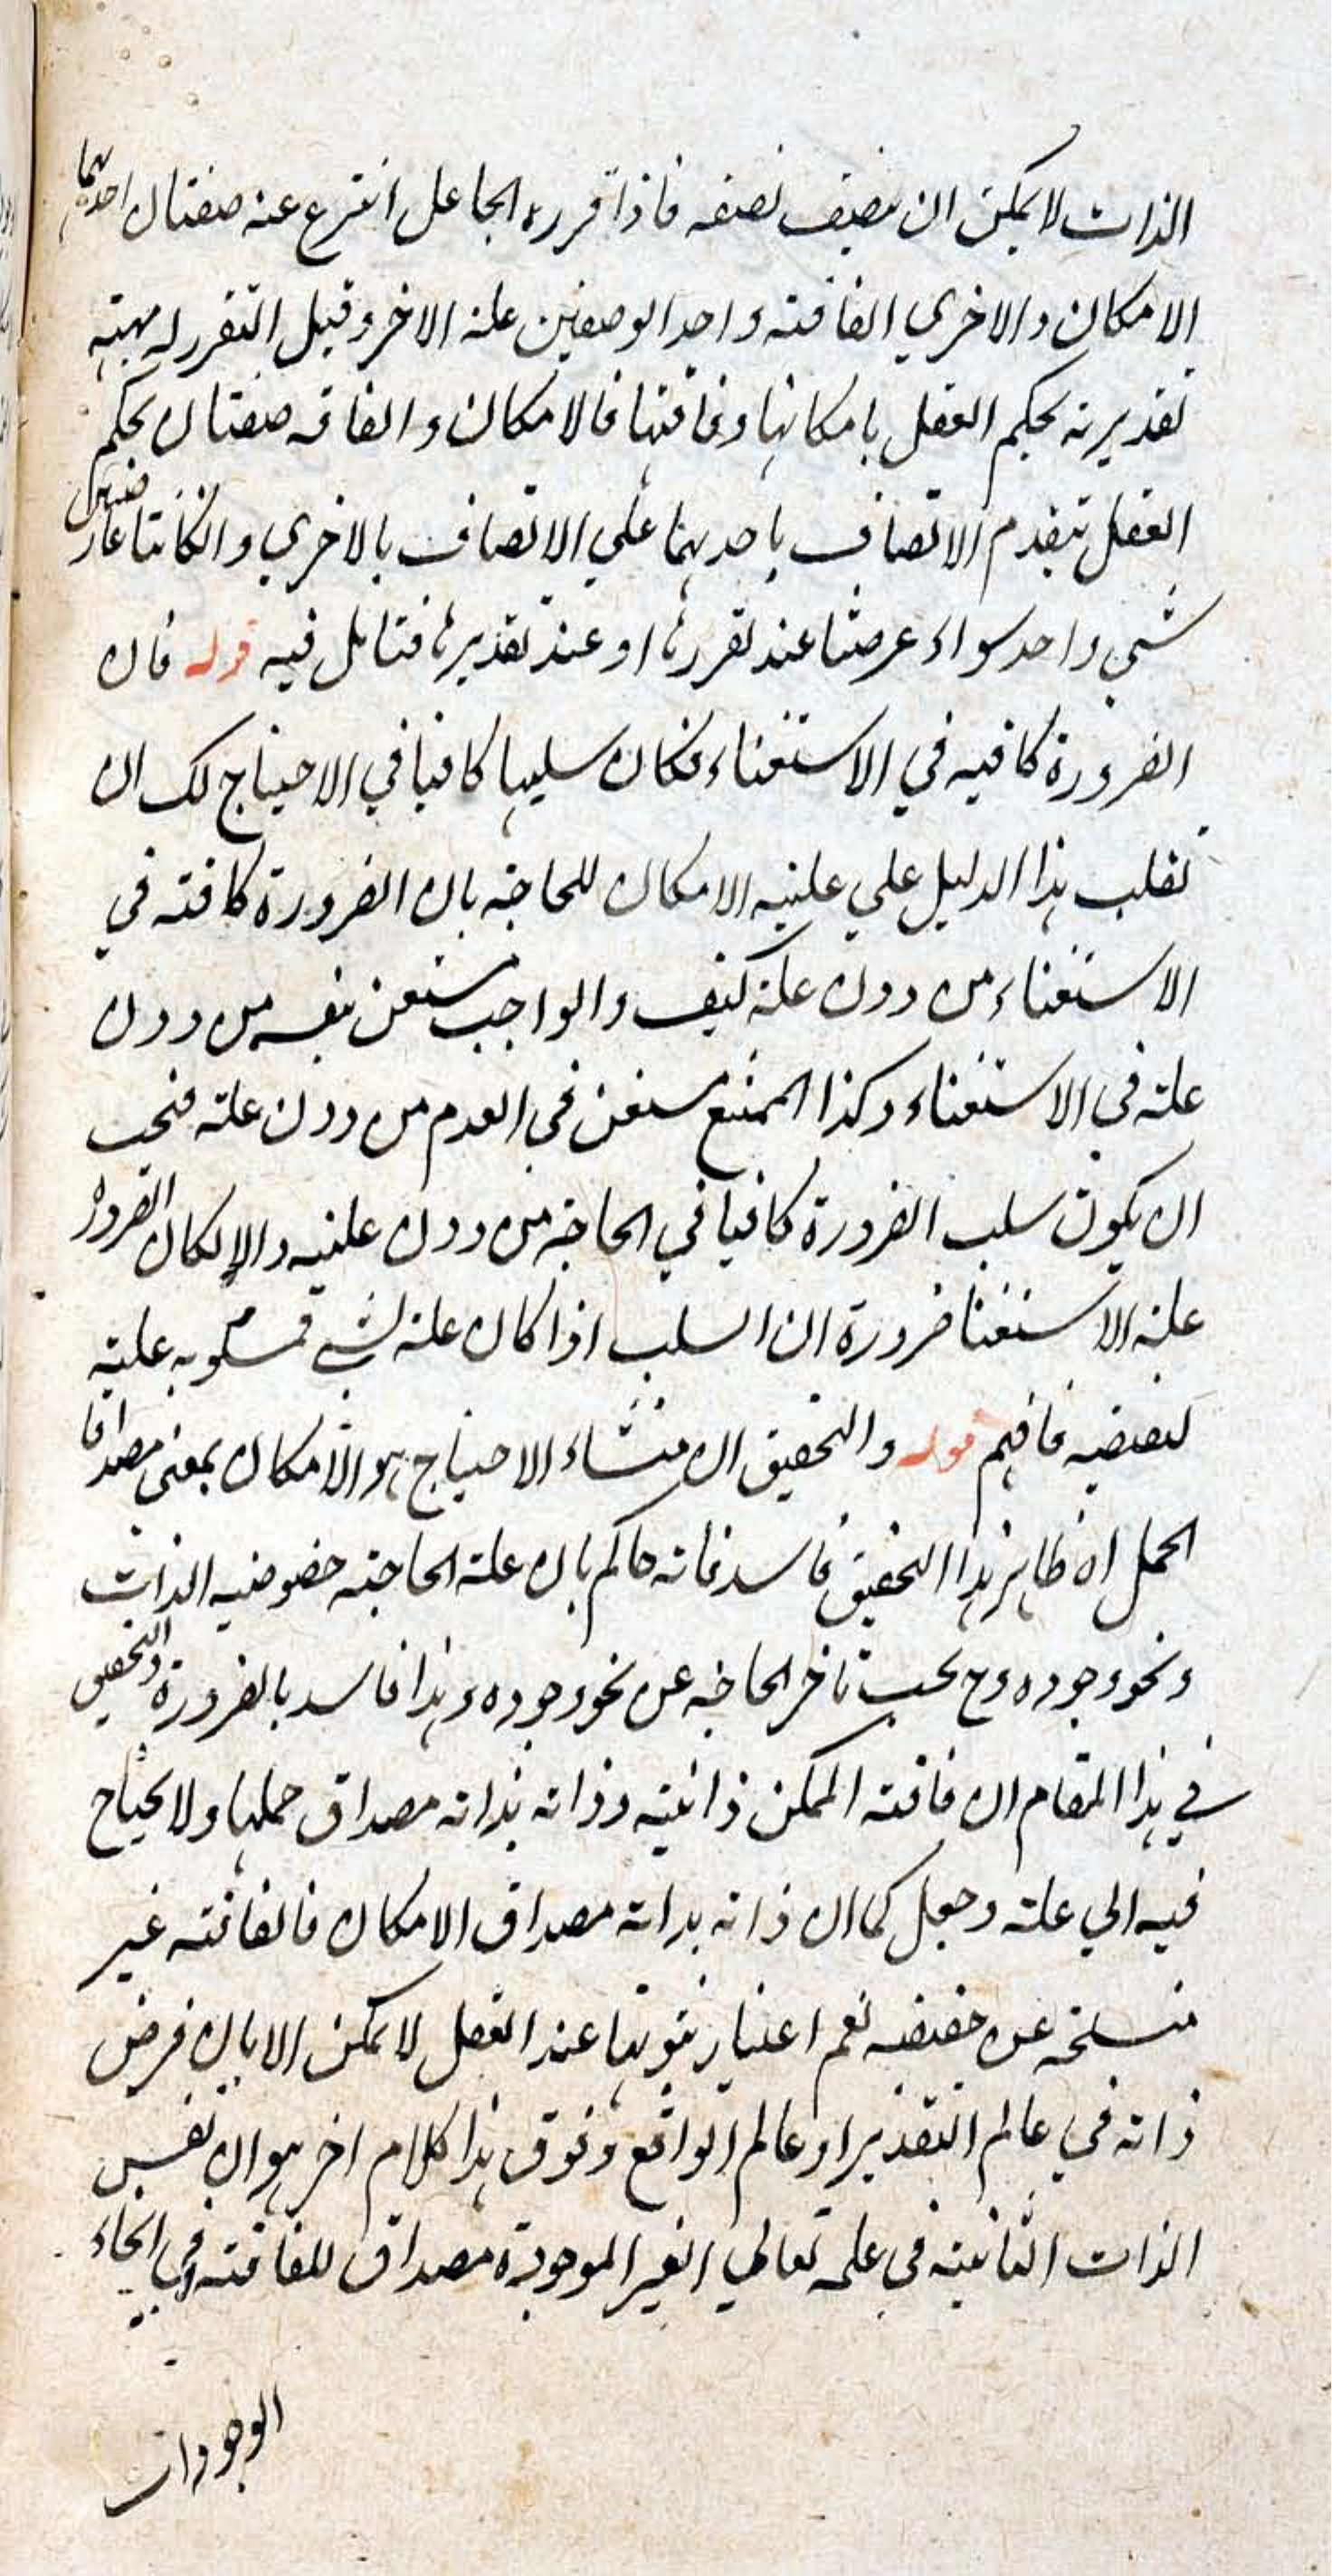 الذات لا يمكن ان يتصف بصفه فاذا قرره الجاعل انتزع عنه صفتان احديهما
الامكان والاخري الفاقته واحد الوصفين علته الاخر وقبل التقرر له مهيته
تقديريه يحكم العقل بامكانها وفاقتها فالامكان والفاقه صفتان يحكم
العقل بتقدم الاتصاف باحديهما علي الاتصاف بالاخري والكانتا عارضتين
شي واحد سواء عرضتا عند تقررها او عند تقديرها فتامل فيه قوله فان
الضرورة كافيه في الاستغناء فكان سلبها كافيا في الاحتياج لك ان
تقلب هذا الدليل علي عليه الامكان للحاجه بان الضرورة كافته في
الاستغناء من دون علته كيف والواجب مستغن بنفسه من دون
علته في الاستغناء وكذا الممتنع مستغن في العدم من دون علته فيجب
ان يكون سلب الضرورة كافيا في الحاجه من دون عليه والا لكان الضروره
علته الاستغنا ضرورة ان السلب اذا كان علته لشي فمسلوبه علته
لنقيضه فافهم قوله والتحقيق ان منشاء الاحتياج هو الامكان بمعني مصداق
الحمل اه ظاهر هذا التحقيق فاسد فانه حاكم بان علته الحاجته خصوصيه الذات
ونحو وجوده وح يجب تاخر الحاجه عن نحو وجوده وهذا فاسد بالضرورة والتحقيق
في هذا المقام ان فاقته الممكن ذاتيته وذاته بذاته مصداق حملها ولا يحتاج
فيه الي علته وجعل كما ان ذاته بذاته مصداق الامكان فالفاقته غير
منسلخه عن حقيقته نعم اعتبار ثبوتها عند العقل لا يمكن الا بان فرض
ذاته في عالم التقدير او عالم الواقع وفوق هذا كلام اخر هو ان نفس
الذات الثابيته في علمه تعالي الغير الموجودة مصداق للفاقته في انحاء
الوجودات